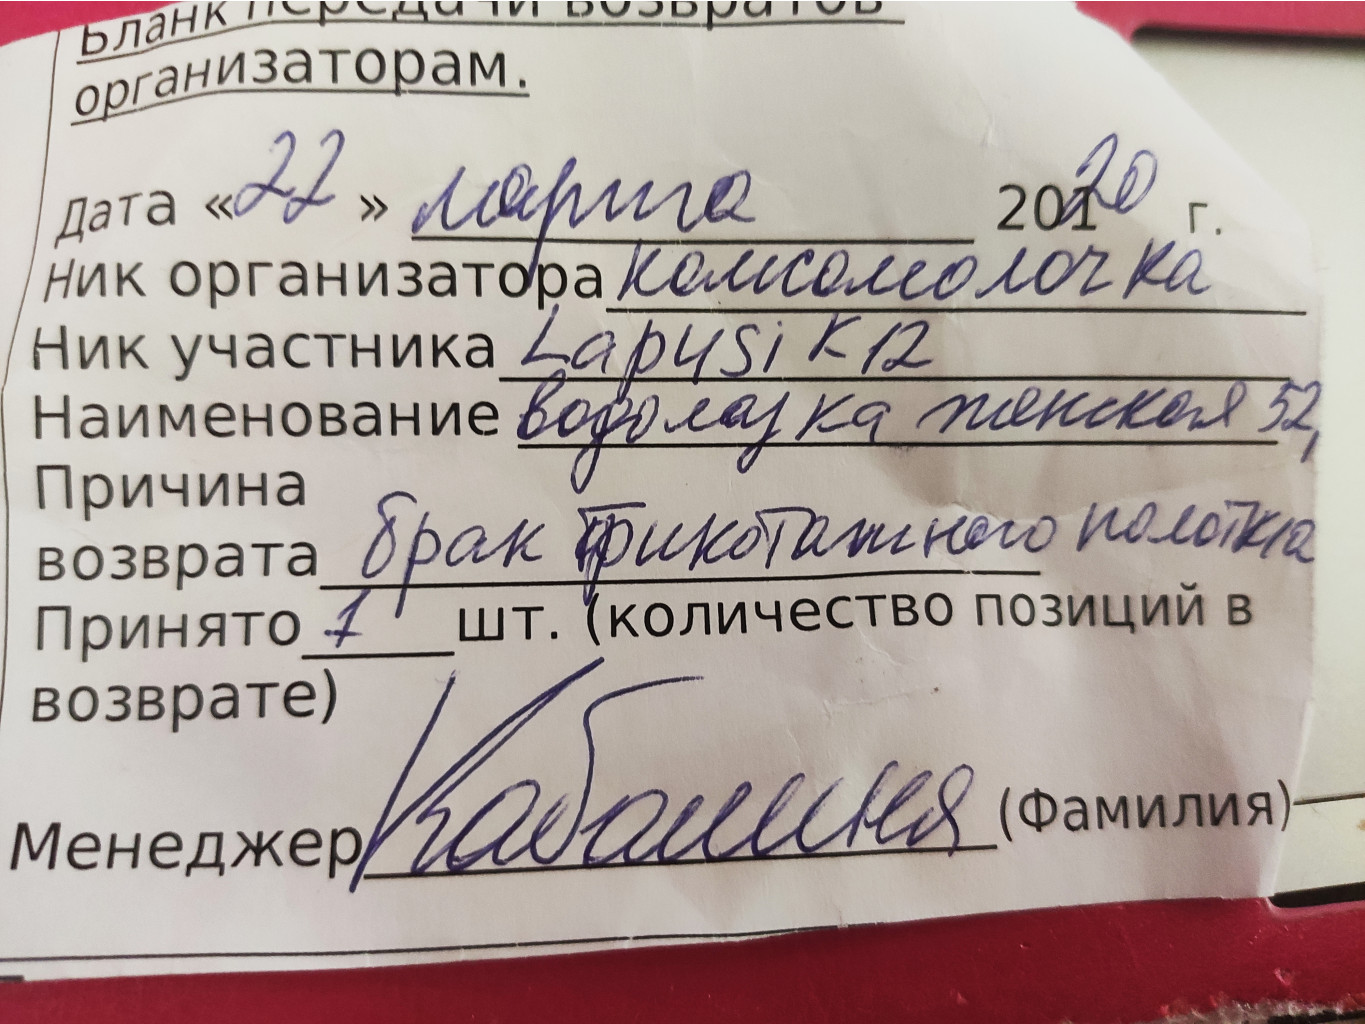 Бланк передачи возвратов
организаторам.
Дата «22» марта 2020 г.
Ник организатора комсомолочка
Ник участника Lapysik12
Наименование водолазка женская 52,
Причина
возврата брак трикотажного полотна
Принято 1 шт. (количество позиций в
возврате)
Менеджер (Фамилия)